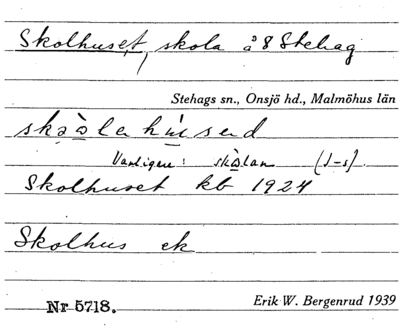 Skolhuset, skola å 8 Stehag
Stehags sn., Onsjö hd., Malmöhus län
skəòlahúsəd
Vanligare: skòlan (J-s).
Skolhuset kb 1924
Skolhus ek
Nr 5718. Erik W. Bergenrud 1939